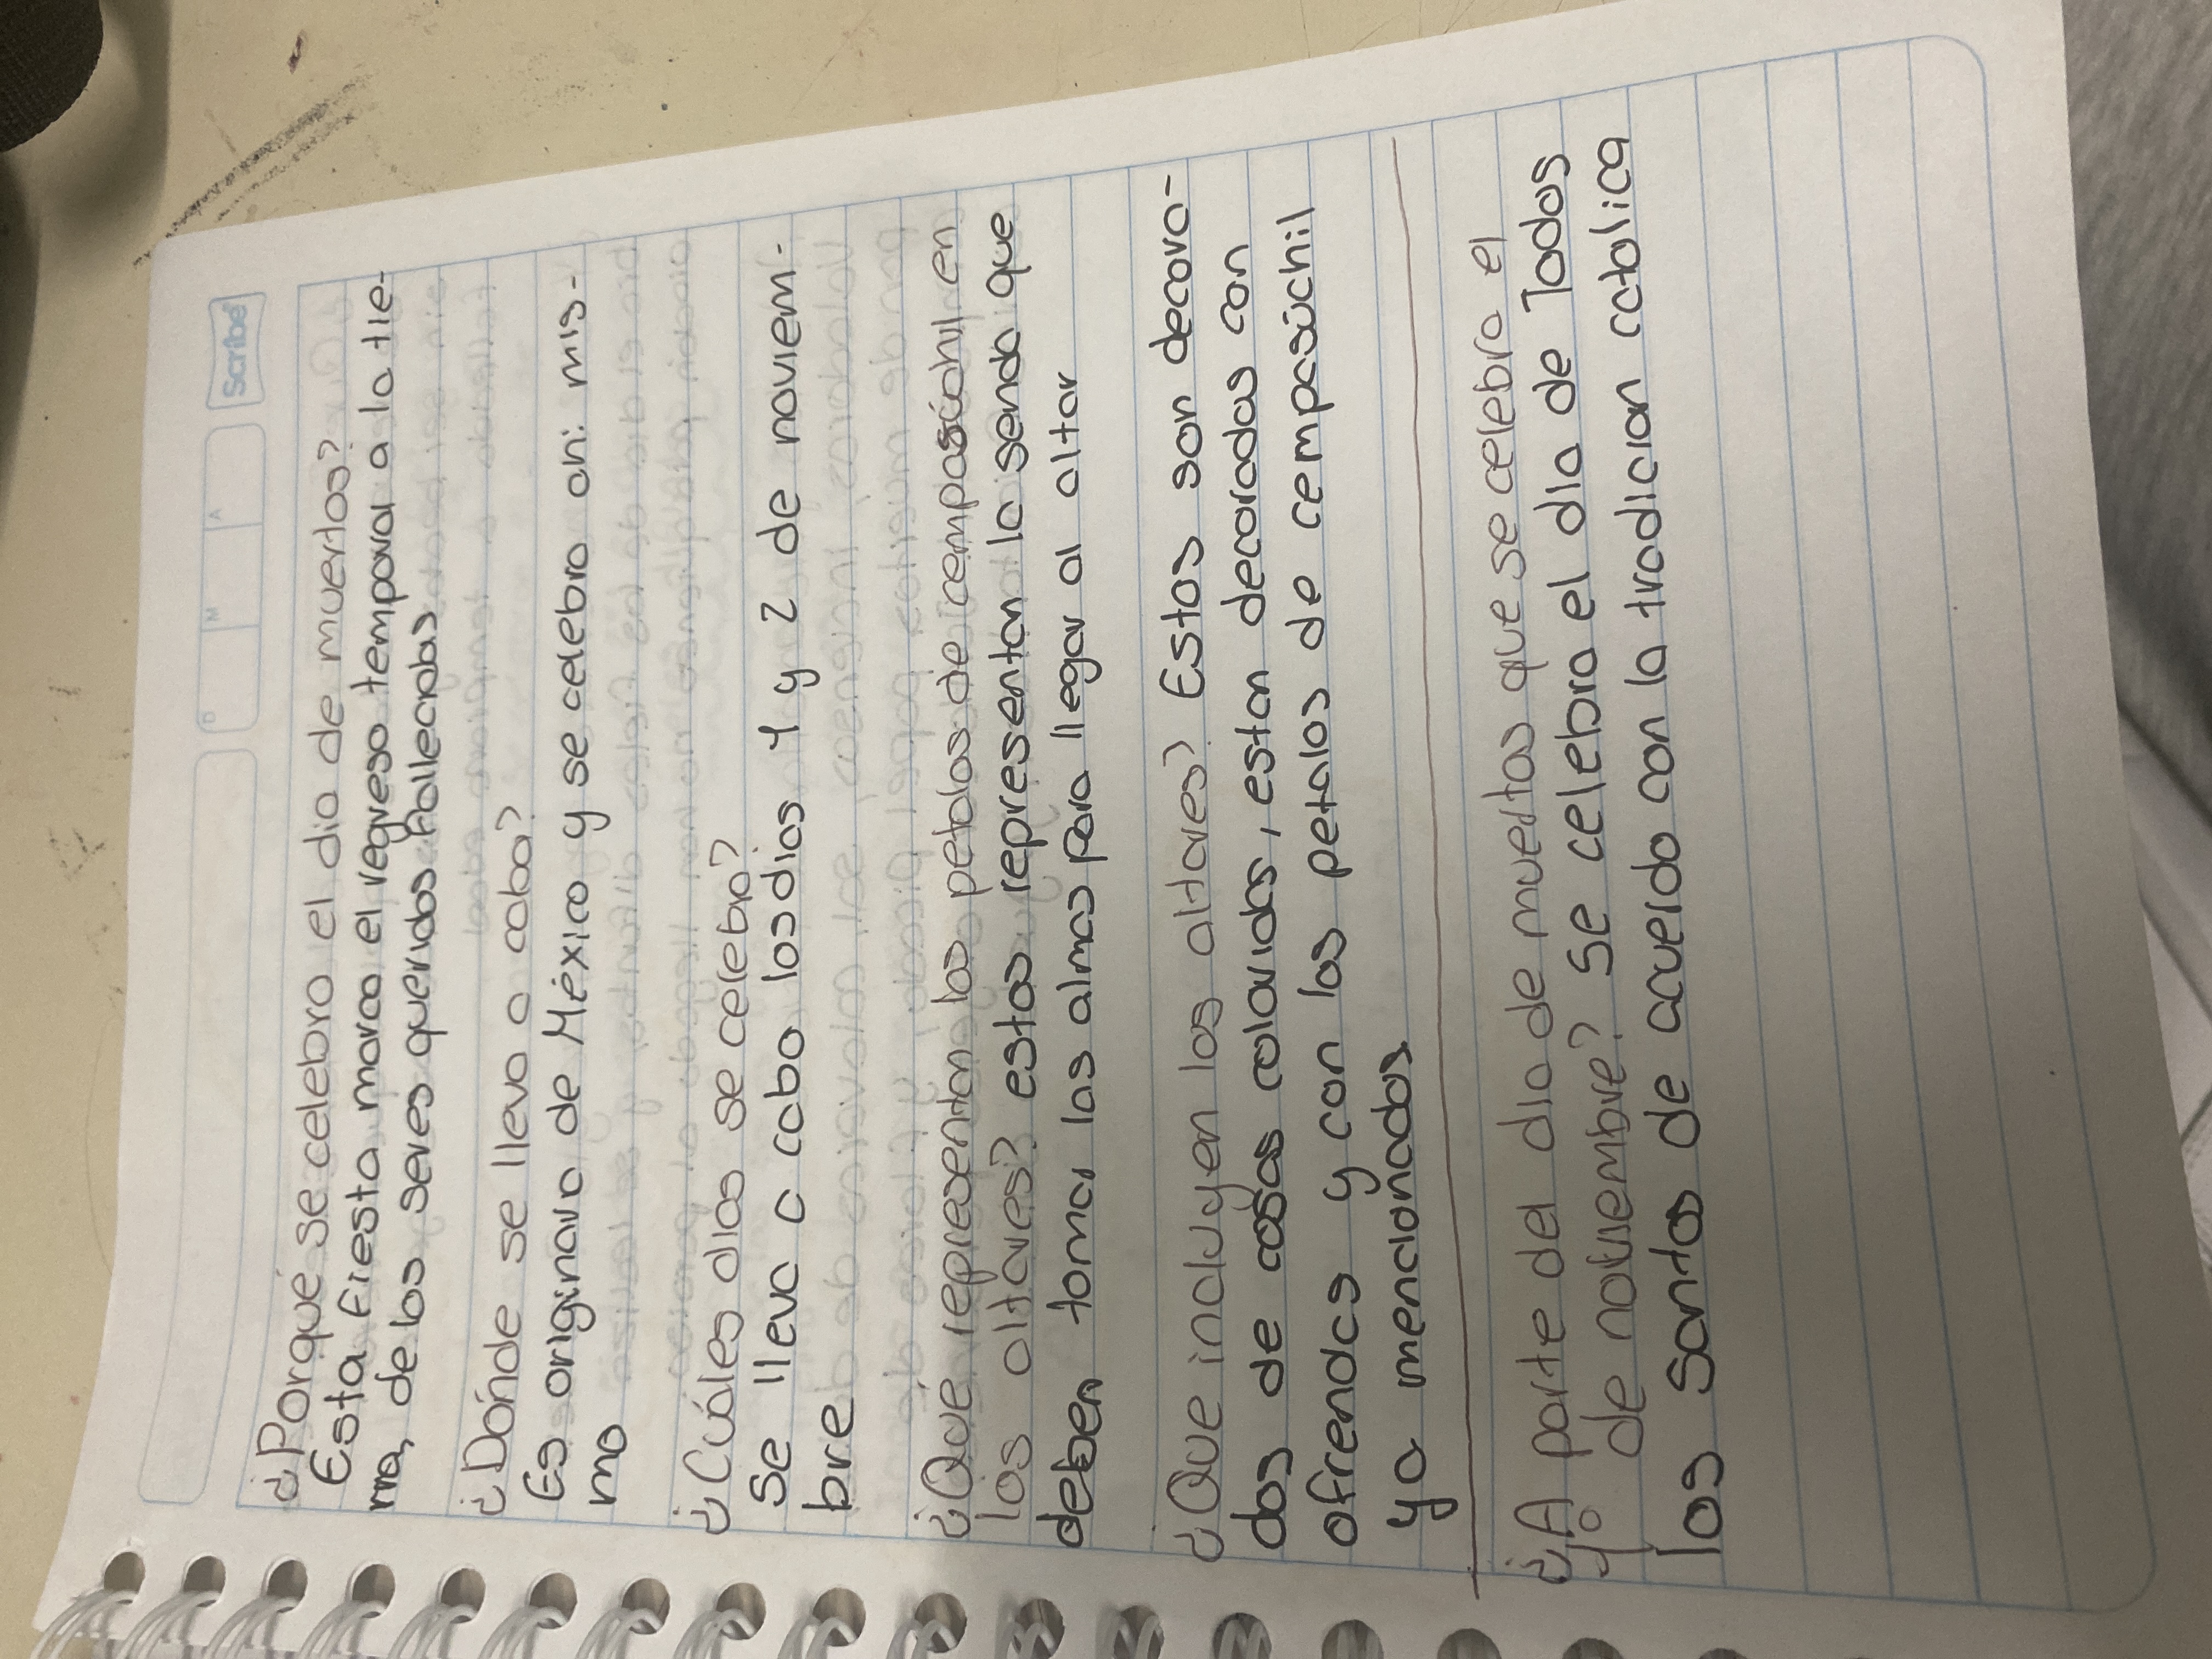 Scribe
D M A
¿Porqué se celebra el dia de muertos?
Esta fiesta marca el regreso temporal a la tie-
rra, de los seres queridos fallecidos
¿Dónde se lleva a cabo?
Es originara de México y se celebra ahi mis-
mo
¿Cuáles dias se celebra?
Se lleva a cabo los dias 1 y 2 de noviem-
bre
¿Qué representan los petalos de cempasúchil en
los altares? estos representan la senda que
deben tomar las almas para llegar al altar
¿Que incluyen los altares? Estos son decora-
dos de cosas coloridas, estan decorados con
ofrendas y con los petalos de cempasúchil
ya mencionados
¿A parte del dia de muertos que se celebra el
1º de noviembre? Se celebra el dia de Todos
los santos de acuerdo con la tradicion catolica